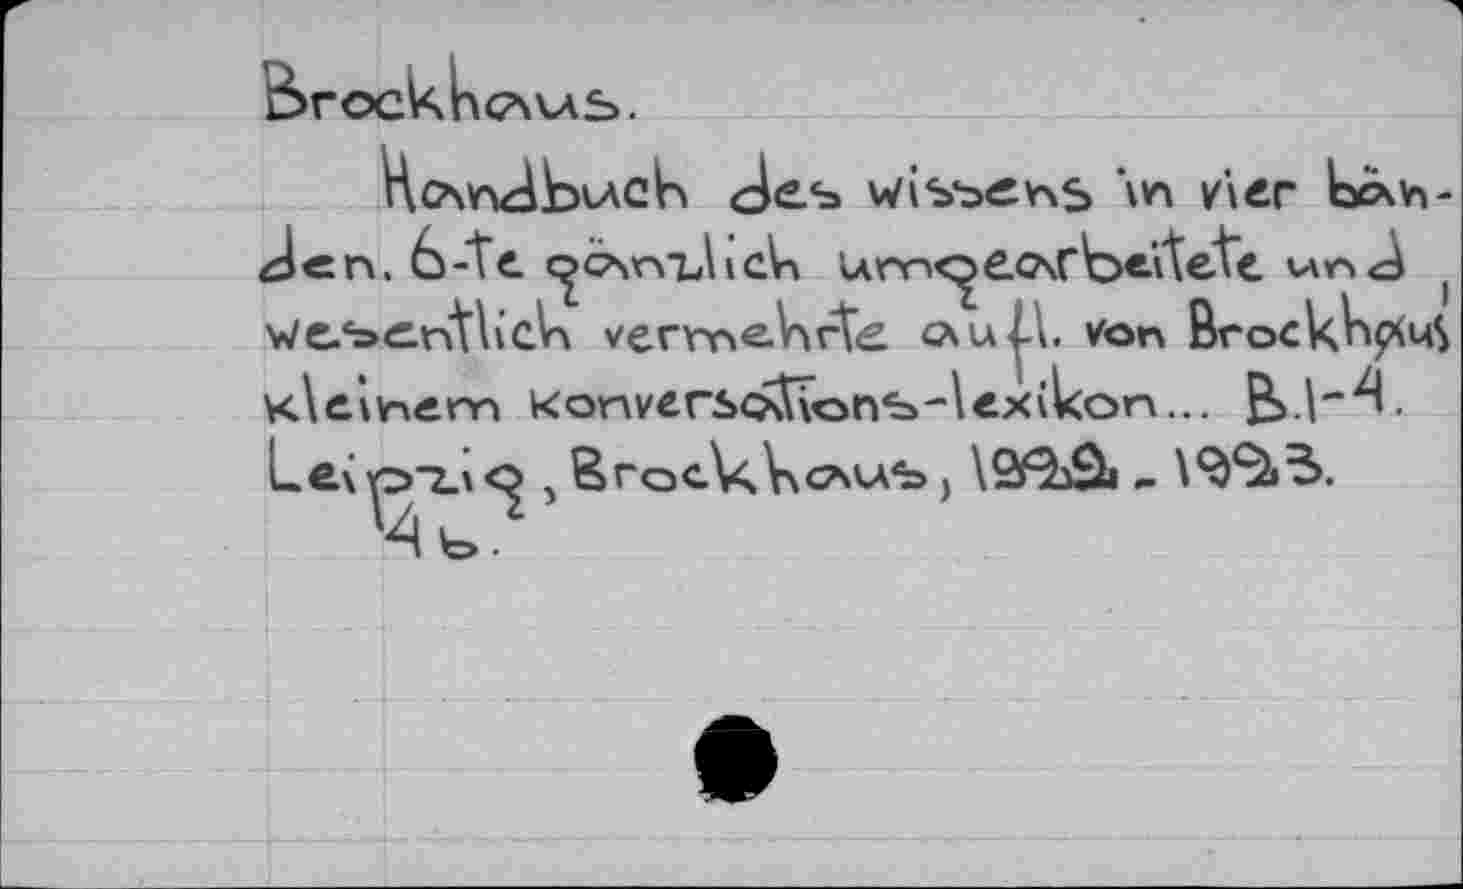 Brockhaus.
Handbuch des wissens in vier bän-
den. 6-te gänzlich umgearbeitete und
wesentlich vermehrte aufl. von Brockhaus'
kleinem konversations-lexikon... B.1-4.
Leipzig, Brockhaus, 1922 - 1923.
4 b.